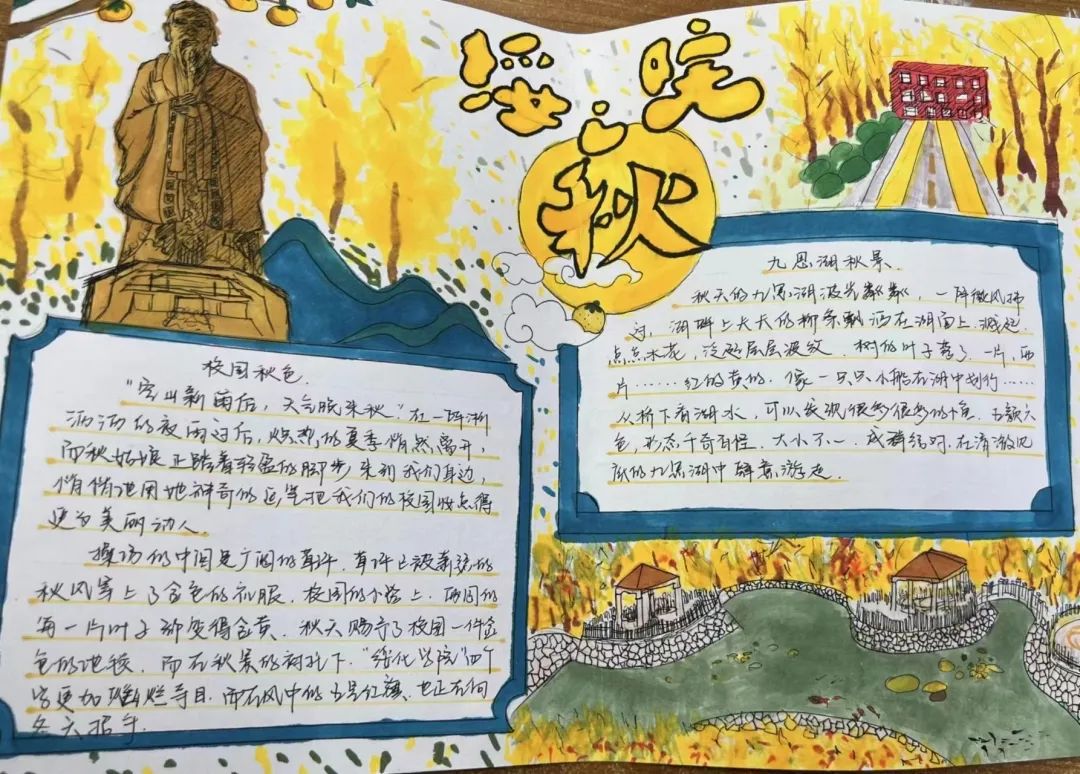 绥院之秋
校园秋色.
"空山新雨后，天气晚来秋"在一阵淅
沥沥的夜雨过后，炽热的夏季悄然离开，
而秋姑娘正踏着轻盈的脚步来到我们身边，
悄悄地用她神奇的笔把我们的校园妆点得
更为美丽动人.
操场的中间是广阔的草坪.草坪已被萧瑟的
秋风穿上了金色的衣服.校园的小路上.两周的
每一片叶子都变得金黄.秋天赐予了校园一件金
色的地毯.而在秋景的衬托下."绥化学院"四个
字更加灿烂夺目.而在风中的五星红旗.也正在向
冬天招手.
九思湖秋景.
秋天的九思湖波光粼粼，一阵微风拂
过.湖畔上大大的柳条飘洒在湖面上.溅起
点点水花，泛起层层波纹.树的叶子落了.一片，两
片……红的黄的.像一只只小船在湖中划行……
从桥下看湖水，可以发现很多很多的鱼.五颜六
色，形态千奇百怪.大小不一.成群结对.在清澈见
底的九思湖中肆意游走.